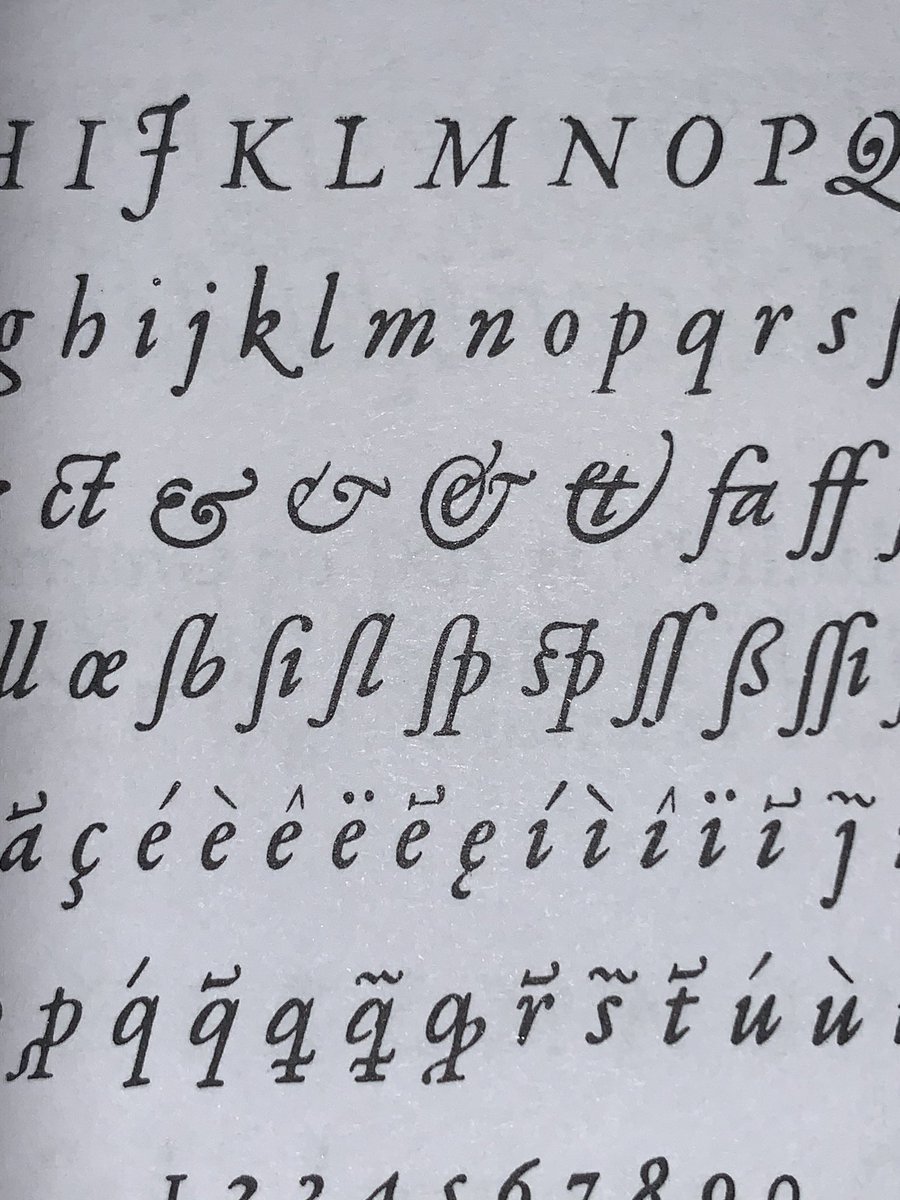 H I J K L M N O P Q
g h i j k l m n o p q r s ſ
ct & & & & fa ff
ll œ ſb ſi ſl ſp sp ſſ ß ſſi
ã ç é è ê ë ẽ ę í ì î ï ĩ ȷ̃
q́ q̃ r̃ s̃ t̃ ú ù
1 2 3 4 5 6 7 8 9 0